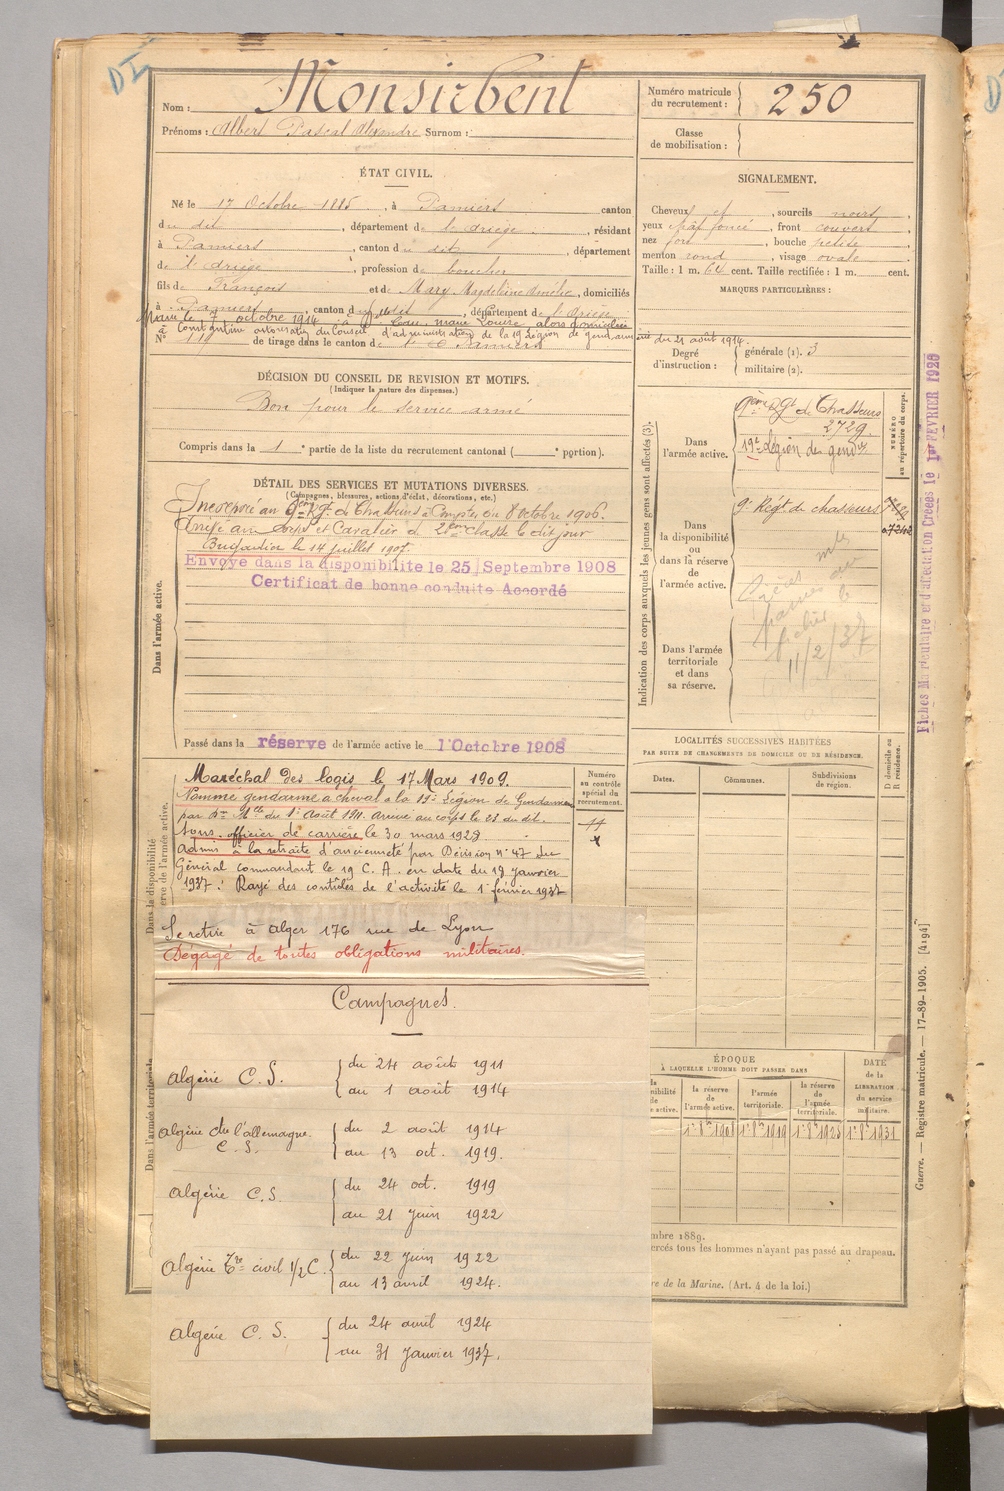 Nom : Monsirbent
Prénoms : Albert Pascal Alexandre Surnom :
ÉTAT CIVIL.
Né le 17 Octobre 1885, à Pamiers canton
du dit, département de l'Ariège, résidant
à Pamiers, canton du dit, département
de l'Ariège, profession de boucher
fils de François et de Mary Magdeleine Amélie, domiciliés
à Pamiers, canton du dit, département de l'Ariège
Marié le 7 octobre 1914 à Marie Louise alors domiciliée
à Constantine autorisation du Conseil d'administration de la 19 Légion de gendarmerie du 21 août 1914.
N° 119 de tirage dans le canton de Pamiers
DÉCISION DU CONSEIL DE REVISION ET MOTIFS.
(Indiquer la nature des dispenses.)
Bon pour le service armé
Compris dans la 1e partie de la liste du recrutement cantonal ( e portion).
DÉTAIL DES SERVICES ET MUTATIONS DIVERSES.
(Campagnes, blessures, actions d'éclat, décorations, etc.)
Incorporé au 9ème Rgt de Chasseurs à Compter du 8 octobre 1906.
Arrivé au Corps et Cavalier de 2ème classe le dit jour
Brigadier le 14 juillet 1907.
Envoyé dans la disponibilité le 25 Septembre 1908
Certificat de bonne conduite Accordé
Dans l'armée active.
Passé dans la réserve de l'armée active le 1 Octobre 1908
Maréchal des logis le 17 Mars 1909.
Nommé gendarme à cheval à la 19e Légion de Gendarmerie
par Don Mlle du 1e Août 1911. Arrivé au corps le 23 du dit.
Sous-officier de carrière le 30 mars 1928
Admis à la retraite d'ancienneté par Décision n° 47 du
Général commandant le 19 C. A. en date du 19 janvier
1937. Rayé des contrôles de l'activité le 1e février 1937
Numéro
au contrôle
spécial du
recrutement.
Dans la disponibilité
Se retire à Alger 176 rue de Lyon
Dégagé de toutes obligations militaires.
Campagnes.
Algérie C. S. du 24 août 1911
au 1 août 1914
Algérie Cie l'allemagne. du 2 août 1914
C. S. au 13 oct. 1919.
Algérie C. S. du 24 oct. 1919
au 21 Juin 1922
Algérie Tre civil 1/2 C. du 22 Juin 1922
au 13 avril 1924.
Algérie C. S. du 24 avril 1924
au 31 Janvier 1937.
Numéro matricule
du recrutement : 250
Classe
de mobilisation :
SIGNALEMENT.
Cheveux et, sourcils noirs,
yeux chât foncé, front couvert
nez fort, bouche petite
menton rond, visage ovale
Taille : 1 m. 64 cent. Taille rectifiée : 1 m. cent.
MARQUES PARTICULIÈRES :
Degré
d'instruction :
générale (1). 3
militaire (2).
Indication des corps auxquels les jeunes gens sont affectés (3).
NUMÉRO
au répertoire du corps.
Dans
l'armée active.
9ème Rgt de Chasseurs
2729.
19e Légion de gendie
Dans
la disponibilité
ou
dans la réserve
de l'armée active.
9e Régt de chasseurs
Dans l'armée
territoriale
et dans
sa réserve.
11/2/37
Fiches Matriculaire et d'affectation Créées le 1er FÉVRIER 1928
LOCALITÉS SUCCESSIVES HABITÉES
PAR SUITE DE CHANGEMENTS DE DOMICILE OU DE RÉSIDENCE.
Dates.
Communes.
Subdivisions
de région.
D domicile ou
R résidence.
ÉPOQUE
À LAQUELLE L'HOMME DOIT PASSER DANS
la réserve
de
l'armée active.
l'armée
territoriale.
la réserve
de
l'armée
territoriale.
DATE
de la
LIBÉRATION
du service
militaire.
1 8bre 1908 1 8bre 1919 1 8bre 1925 1 8bre 1931
mbre 1889.
ercés tous les hommes n'ayant pas passé au drapeau.
re de la Marine. (Art. 4 de la loi.)
Guerre. — Registre matricule. — 17-89-1905. [4194]